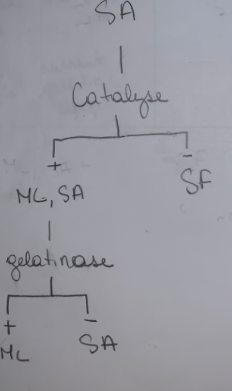 SA
Catalyse
+ -
ML, SA SF
gelatinase
+ -
ML SA